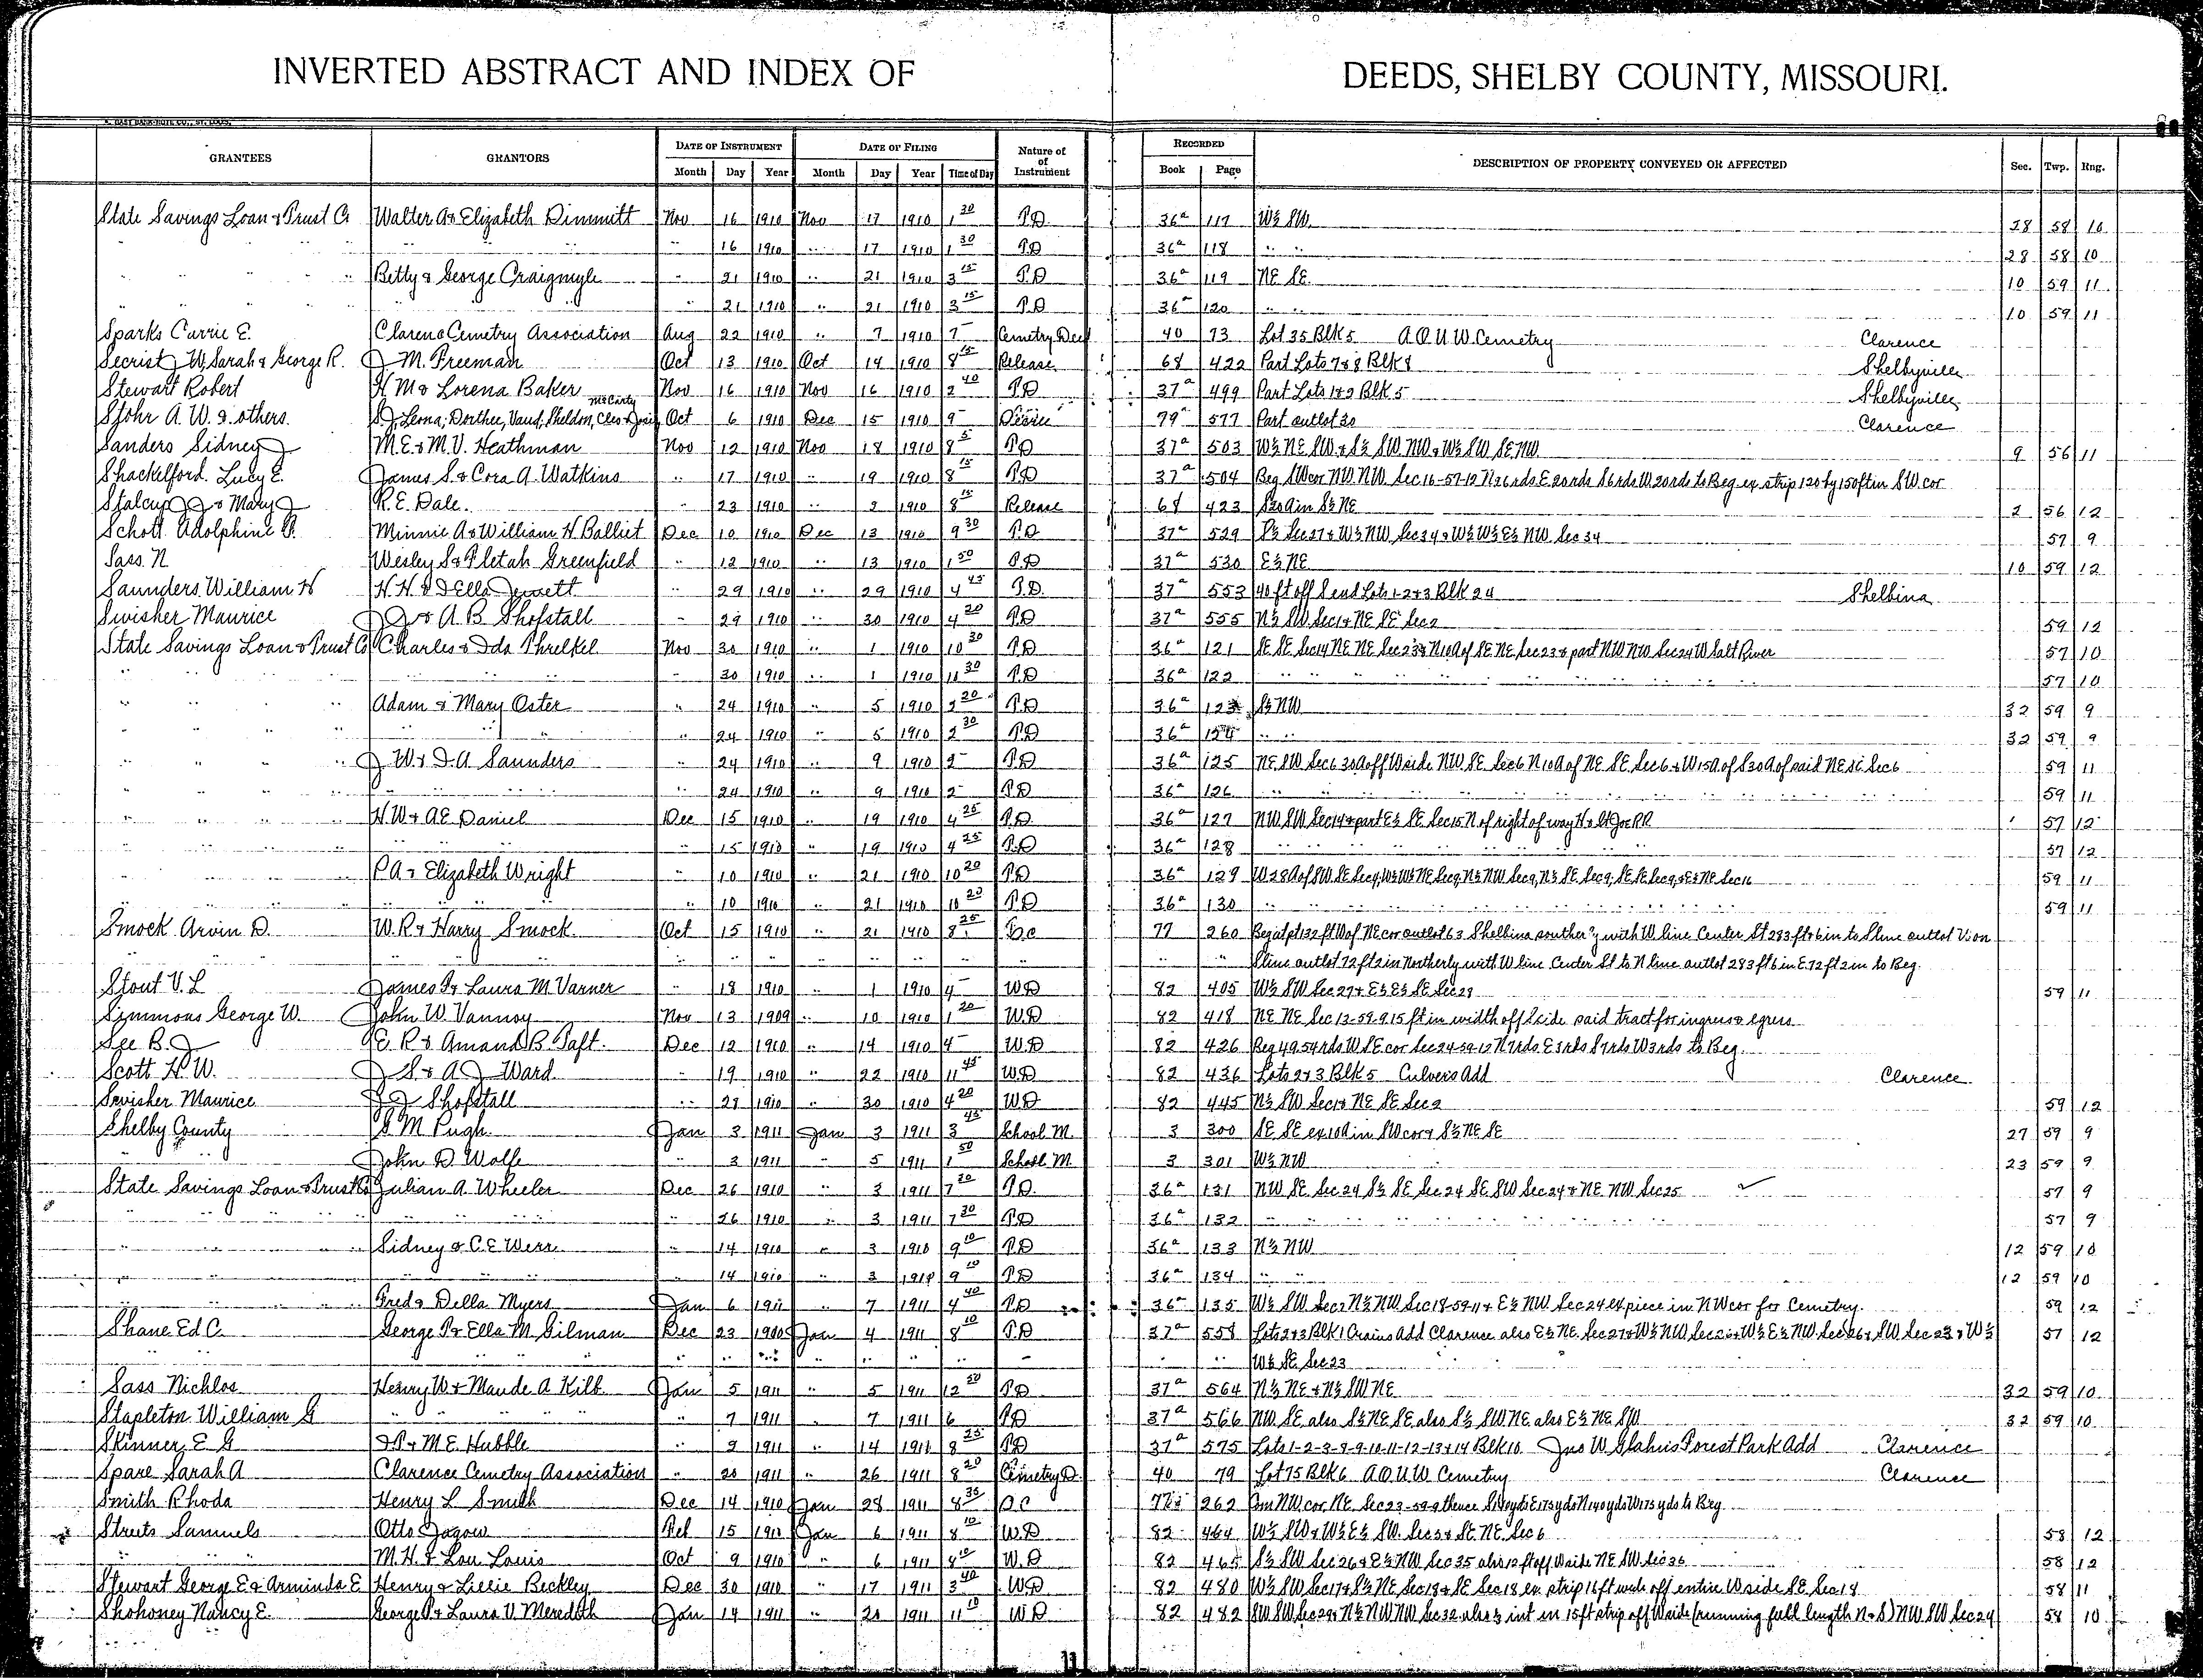 INVERTED ABSTRACT AND INDEX OF DEEDS, SHELBY COUNTY, MISSOURI.
GRANTEES GRANTORS DATE OF INSTRUMENT DATE OF FILING Nature of of Instrument RECORDED DESCRIPTION OF PROPERTY CONVEYED OR AFFECTED Sec. Twp. Rng.
Month Day Year Month Day Year Time of Day Book Page
State Savings Loan & Trust Co Walter A & Elizabeth Dimmitt Nov 16 1910 Nov 17 1910 1 30 T.D. 36a 117 W½ SW 28 58 10
" " 16 1910 " 17 1910 1 30 T.D 36a 118 " " 28 58 10
" " Betty & George Craigmyle " 21 1910 " 21 1910 3 15 T.D 36a 119 NE SE 10 59 11
" " " 21 1910 " 21 1910 3 15 T.D 36a 120 " 10 59 11
Sparks Carrie E. Clarence Cemetry Association Aug 22 1910 " 7 1910 7 - Cemetry Deed 40 73 Lot 35 Blk 5 A O U W Cemetry Clarence
Secrist J W, Sarah & George R. J M. Freeman Oct 13 1910 Oct 14 1910 8 15 Release 68 422 Part Lots 7 & 8 Blk 8 Shelbyville
Stewart Robert H M & Lorena Baker Nov 16 1910 Nov 16 1910 2 40 T.D 37a 499 Part Lots 1 & 2 Blk 5 Shelbyville
Stohr A. W. & others. S. J, Leona; Dorthee, Vaud, Sheldon, Cleo & McCarty Oct 6 1910 Dec 15 1910 9 - 79 577 Part outlot 20 Clarence
Sanders Sidney J M. E. & M. V. Heathman Nov 12 1910 Nov 18 1910 8 5 T.D 37a 503 W½ NE SW & S½ SW NW & W½ SW SE NW 9 56 11
Shackelford. Lucy E. James S. & Cora A. Watkins " 17 1910 " 19 1910 8 15 T.D 37a 504 Beg SW cor NW NW Sec 16-57-12 N 36 rds E 20 rds S 6 rds W 20 rds to Beg ex strip 120 by 150 ft in SW cor
Stalcup J J & Mary J R. E. Dale. " 23 1910 " 2 1910 8 15 Release 68 423 S 20 A in S½ NE 2 56 12
Schott Adolphine P. Minnie A & William H Balliet Dec 10 1910 Dec 13 1910 9 30 T.D 37a 529 S½ Sec 27 & W½ NW Sec 34 & W½ W½ E½ NW Sec 34 57 9
Sass N Wesley S & Pletah Greenfield " 12 1910 " 13 1910 1 50 T.D 37a 530 E½ NE 10 59 12
Saunders William H H. H. & D Ella Jewett " 29 1910 " 29 1910 4 45 T.D. 37a 553 40 ft off S end Lots 1-2 & 3 Blk 24 Shelbina
Swisher Maurice J J & A. B Shofstall " 29 1910 " 30 1910 4 20 T.D 37a 555 N½ SW Sec 1 & NE SE Sec 2 59 12
State Savings Loan & Trust Co Charles & Ida Threlkel Nov 30 1910 " 1 1910 10 30 T.D 36a 121 SE SE Sec 14 NE NE Sec 23 & N 10 A of SE NE Sec 23 & part NW NW Sec 24 W Salt River 57 10
" " 30 1910 " 1 1910 11 30 T.D 36a 122 " " 57 10
" " Adam & Mary Oster " 24 1910 " 5 1910 2 20 T.D 36a 123 S½ NW 32 59 9
" " " 24 1910 " 5 1910 2 30 T.D 36a 124 " " 32 59 9
" " J. W & I. A Saunders " 24 1910 " 9 1910 2 - T.D 36a 125 NE SW Sec 6 30 A off W side NW SE Sec 6 N 10 A of NE SE Sec 6 & W 15 A of S 30 A of said NE SE Sec 6 59 11
" " " 24 1910 " 9 1910 2 - T.D 36a 126 " " 59 11
" " H. W & A E Daniel Dec 15 1910 " 19 1910 4 25 T.D 36a 127 NW SW Sec 14 & part E½ SE Sec 15 N of right of way H & St Joe RR 57 12
" " " 15 1910 " 19 1910 4 25 T.D 36a 128 " " 57 12
" " P A & Elizabeth Wright " 10 1910 " 21 1910 10 20 T.D 36a 129 W 28 A of SW SE Sec 4, W½ W½ NE Sec 9, N½ NW Sec 9, N½ SE Sec 9, SE SE Sec 9, & E½ NE Sec 16 59 11
" " " 10 1910 " 21 1910 10 20 T.D 36a 130 " " 59 11
Smock Arvin D. W. R & Harry Smock Oct 15 1910 " 21 1910 8 25 77 260 Beg at pt 132 ft W of NE cor outlot 63 Shelbina southerly with W line Center St 283 ft & 6 in to S line outlot W on
" " " " " " S line outlot 72 ft 2 in Northerly with W line Center St to N line outlot 283 ft 6 in E 72 ft 2 in to Beg.
Stout V. L James P & Laura M Varner " 18 1910 " 1 1910 4 - W.D 82 405 W½ SW Sec 27 & E½ E½ SE Sec 28 59 11
Simmons George W. John W. Vannoy Nov 13 1909 " 10 1910 1 20 W.D 82 418 NE NE Sec 13-59-9 15 ft in width off S side said tract for ingress & egress
See B. J E. R & Amanda B. Taft. Dec 12 1910 " 14 1910 4 - W.D 82 426 Beg 49.54 rds W SE cor Sec 24-59-12 N 7 rds E 3 rds S 7 rds W 3 rds to Beg.
Scott H. W. J S. & A J Ward " 19 1910 " 22 1910 11 45 W.D 82 436 Lots 2 & 3 Blk 5 Culvers Add Clarence
Swisher Maurice J J Shofstall " 29 1910 " 30 1910 4 20 W.D 82 445 N½ SW Sec 1 & NE SE Sec 2 59 12
Shelby County S M Pugh Jan 3 1911 Jan 3 1911 3 45 School M. 3 300 SE SE ex 10 A in SW cor & S½ NE SE 27 59 9
John D. Wolfe " 3 1911 " 5 1911 1 50 School M 3 301 W½ NW 23 59 9
State Savings Loan & Trust Co Julian A. Wheeler Dec 26 1910 " 3 1911 7 20 T.D. 36a 131 NW SE Sec 24 S½ SE Sec 24 SE SW Sec 24 & NE NW Sec 25 57 9
" " " 26 1910 " 3 1911 7 30 T.D 36a 132 " " 57 9
" " Sidney & C. E Werr " 14 1910 " 3 1910 9 10 T.D 36a 133 N½ NW 12 59 10
" " " 14 1910 " 3 1911 9 10 T.D 36a 134 " " 12 59 10
" " Fred & Della Myers Jan 6 1911 " 7 1911 4 40 T.D 36a 135 W½ SW Sec 7 N½ NW Sec 18-59-11 & E½ NW Sec 24 ex piece in NW cor for Cemetry. 59 12
Shane Ed C. George P & Ella M. Gilman Dec 23 1910 Jan 4 1911 8 10 T.D 37a 558 Lots 2 & 3 Blk 1 Crains Add Clarence also E½ NE Sec 27 & W½ NW Sec 26 & W½ E½ NW Sec 26 & SW Sec 23 & W½ 57 12
" " " " " " W½ SE Sec 23
Sass Nichlos Henry W & Maude A Kilb Jan 5 1911 " 5 1911 12 50 T.D 37a 564 N½ NE & N½ SW NE 32 59 10
Stapleton William G " " " 7 1911 " 7 1911 6 T.D 37a 566 NW SE also S½ NE SE also S½ SW NE also E½ NE SW 32 59 10
Skinner E G I. P & M. E Hubble " 2 1911 " 14 1911 8 25 T.D 37a 575 Lots 1-2-3-8-9-10-11-12-13 & 14 Blk 10 Jno W Glahns Forest Park Add Clarence
Spare Sarah A Clarence Cemetry Association " 20 1911 " 26 1911 8 20 Cemetry D. 40 79 Lot 75 Blk 6 A O U W Cemetry Clarence
Smith Rhoda Henry L Smith Dec 14 1910 Jan 28 1911 8 35 262 Com NW cor NE Sec 23-59-9 thence S 140 yds E 175 yds N 140 yds W 175 yds to Beg
Streets Samuels Otto Jagow 15 1910 Jan 6 1911 8 10 W.D 82 464 W½ SW & W½ E½ SW Sec 5 & SE NE Sec 6 58 12
" " M. H. & Lou Louis Oct 9 1910 " 6 1911 8 10 W.D 82 465 S½ SW Sec 26 & E½ NW Sec 35 also 12 ft off W side NE SW Sec 35 58 12
Stewart George E & Arminda E Henry & Lillie Beckley Dec 30 1910 " 17 1911 3 40 W.D 82 480 W½ SW Sec 17 & S½ NE Sec 18 & SE Sec 18 ex strip 16 ft wide off entire W side SE Sec 18 58 11
Shohoney Nancy E. George P & Laura V. Meredith Jan 14 1911 " 20 1911 11 10 W.D 82 482 SW SW Sec 29 & N½ NW NW Sec 32 also ½ int in 15 ft strip off W side (running full length N & S) NW SW Sec 24 58 10
11